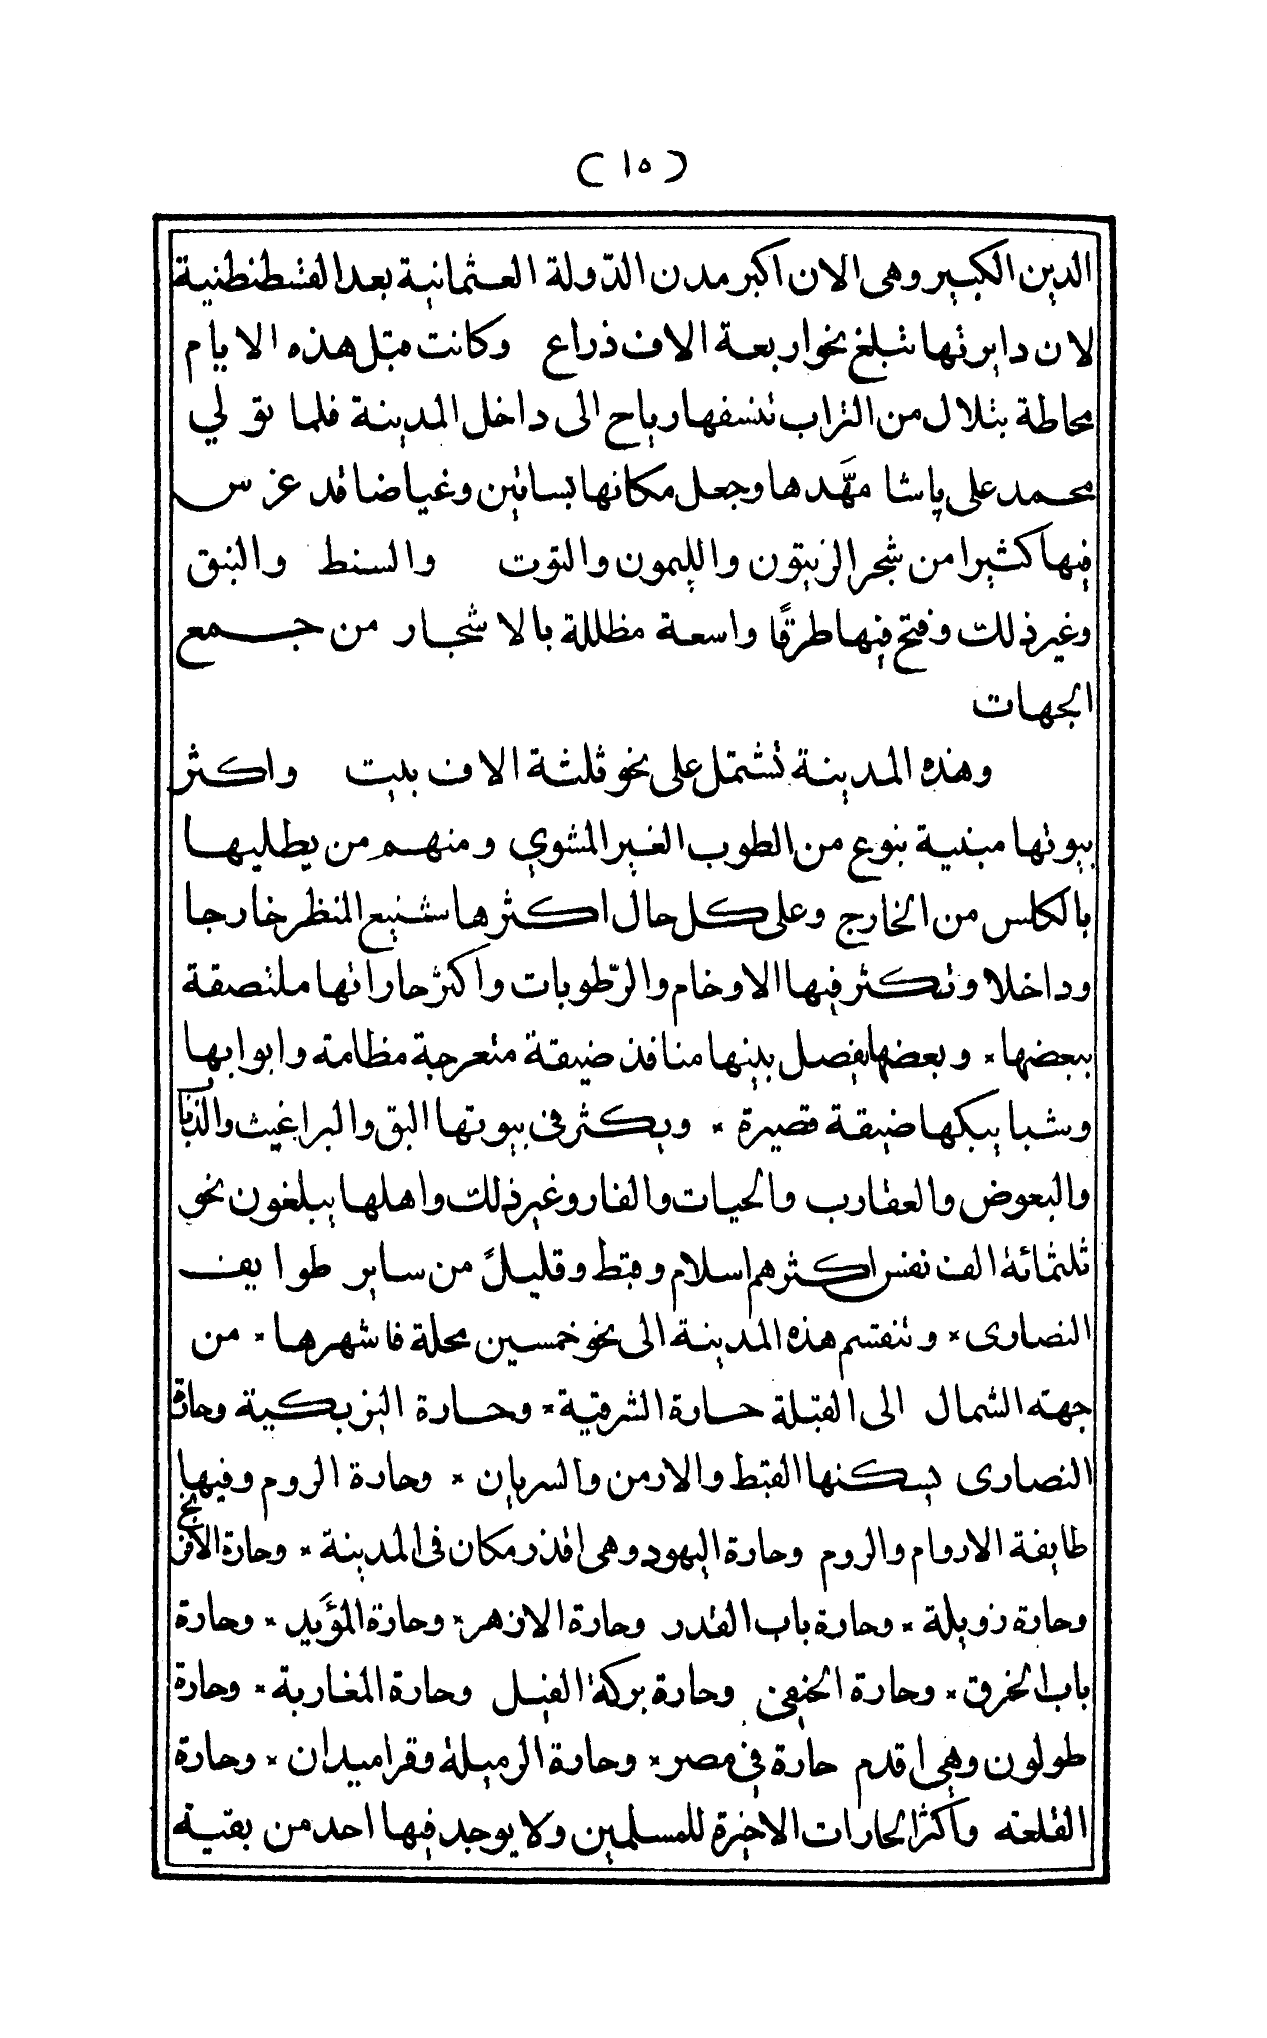 (١٥)
الدين الكبير وهى الان اكبر مدن الدّولة العثمانية بعد القسطنطنية
لان دايرتها تبلغ نحو اربعة الاف ذراع وكانت قبل هذه الايام
محاطة بتلال من التراب تنسفها رياح الى داخل المدينة فلما تولي
محمد على پاشا مهّدها وجعل مكانها بساتين وغياضا قد غرس
فيها كثيرا من شجر الزيتون والليمون والتوت والسنط والنبق
وغير ذلك وفتح فيها طرقًا واسعة مظللة بالاشجار من جمع
الجهات
وهذه المدينة تشتمل على نحو ثلثة الاف بيت واكثر
بيوتها مبنية بنوع من الطوب الغير المشوي ومنهم من يطليها
بالكلس من الخارج وعلى كل حال اكثرها شنيع المنظر خارجا
وداخلا وتكثر فيها الاوخام والرّطوبات واكثر حاراتها ملتصقة
ببعضها * وبعضها يفصل بينها منافذ ضيقة متعرجة مظلمة وابوابها
وشبابيكها ضيقة قصيرة * ويكثر في بيوتها البق والبراغيث والذباب
والبعوض والعقارب والحيات والفار وغير ذلك واهلها يبلغون نحو
ثلثمائة الف نفس اكثرهم اسلام وقبط وقليلً من ساير طوايف
النصارى * وتنقسم هذه المدينة الى نحو خمسين محلة فاشهرها * من
جهته الشمال الى القبلة حارة الشرقية * وحارة اليزبكية وحارة
النصارى يسكنها القبط والارمن والسريان * وحارة الروم وفيها
طايفة الاروام والروم وحارة اليهود وهى اقذر مكان فى المدينة * وحارة الافرنج
وحارة زويلة * وحارة باب القدر وحارة الازهر * وحارة المؤيد * وحارة
باب الخرق * وحارة الحنفي وحارة بركة الفيل وحارة المغاربة * وحارة
طولون وهي اقدم حارة في مصر * وحارة الرميلة وقراميدان * وحارة
القلعته واكثر الحارات الاخيرة للمسلمين ولا يوجد فيها احد من بقية